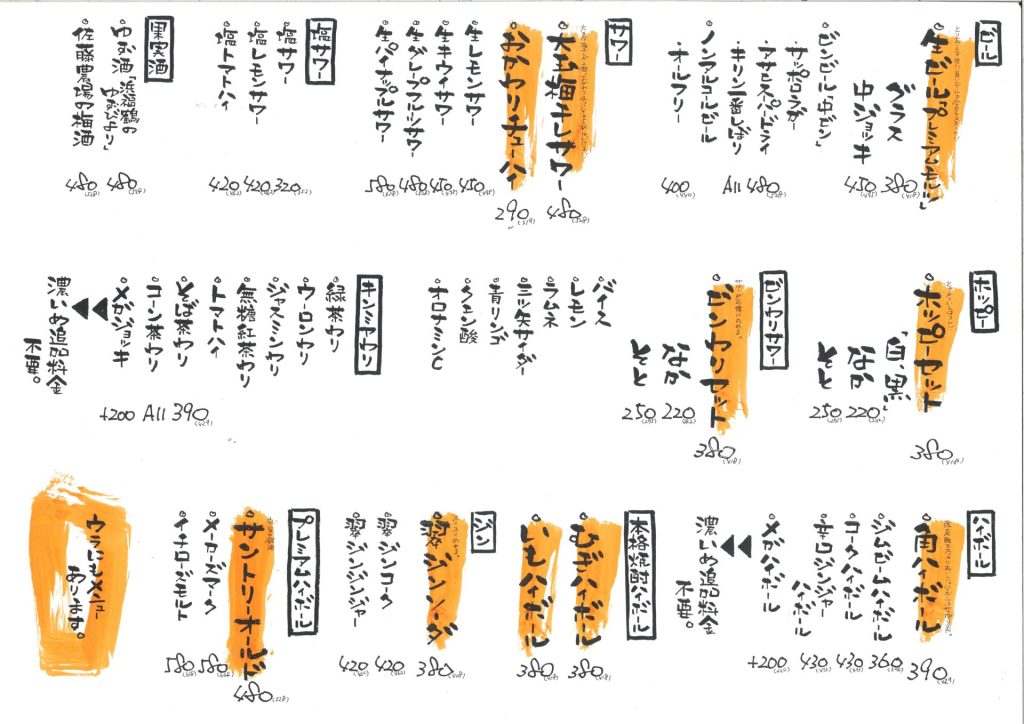 ビール
生ビール「プレミアムモルツ」
グラス 380(418)
中ジョッキ 450(495)
ビンビール「中ビン」
・サッポロラガー
・アサヒスーパードライ
・キリン一番しぼり
All 480(528)
ノンアルコールビール
・オールフリー
400(440)
サワー
大玉梅干しサワー 480(528)
おかわりチューハイ 290(319)
生レモンサワー 450(495)
生キウイサワー 450(495)
生グレープフルーツサワー 480(528)
生パイナップルサワー 580(638)
塩サワー
塩サワー 320(352)
塩レモンサワー 420(462)
塩トマトハイ 420(462)
果実酒
ゆず酒「浜福鶴の
ゆずびより」
480(528)
佐藤農場の梅酒 480(528)
ホッピー
ホッピーセット 380(418)
「白、黒」
なか 220(242)
そと 250(275)
ビンワリサワー
ビンワリセット 380(418)
なか 220(242)
そと 250(275)
バイス
レモン
ラムネ
三ツ矢サイダー
青リンゴ
クエン酸
オロナミンC
キンミヤワリ
緑茶ワリ
ウーロンワリ
ジャスミンワリ
無糖紅茶ワリ
トマトハイ
そば茶ワリ
コーン茶ワリ
All 390(429)
メガジョッキ +200
濃いめ追加料金
不要。
ハイボール
角ハイボール 390(429)
ジムビームハイボール 360(396)
コークハイボール 430(473)
辛口ジンジャー
ハイボール
430(473)
メガハイボール +200(220)
濃いめ追加料金
不要。
本格焼酎ハイボール
むぎハイボール 380(418)
いもハイボール 380(418)
ジン
翠ジンソーダ 380(418)
翠ジンコーク 420(462)
翠ジンジンジャー 420(462)
プレミアムハイボール
サントリーオールド 480(528)
メーカーズマーク 580(638)
イチローズモルト 580(638)
ウラにもメニュー
あります。